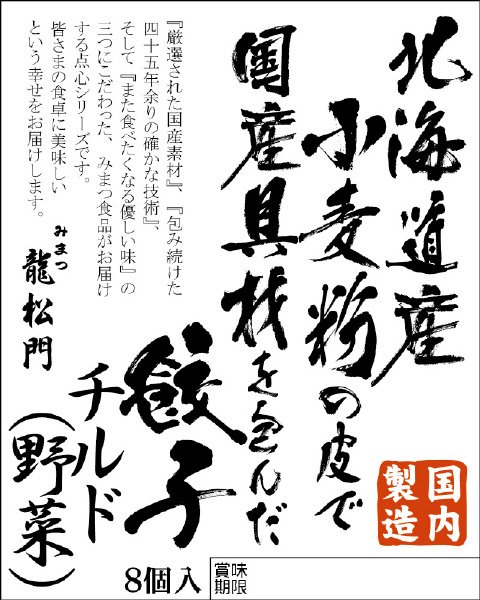 北海道産
小麦粉の皮で
国産具材を包んだ
餃子
チルド
（野菜）
『厳選された国産素材』、『包み続けた
四十五年余りの確かな技術』、
そして『また食べたくなる優しい味』の
三つにこだわった、みまつ食品がお届け
する点心シリーズです。
皆さまの食卓に美味しい
という幸せをお届けします。
みまつ
龍松門
国内
製造
8個入
賞味
期限